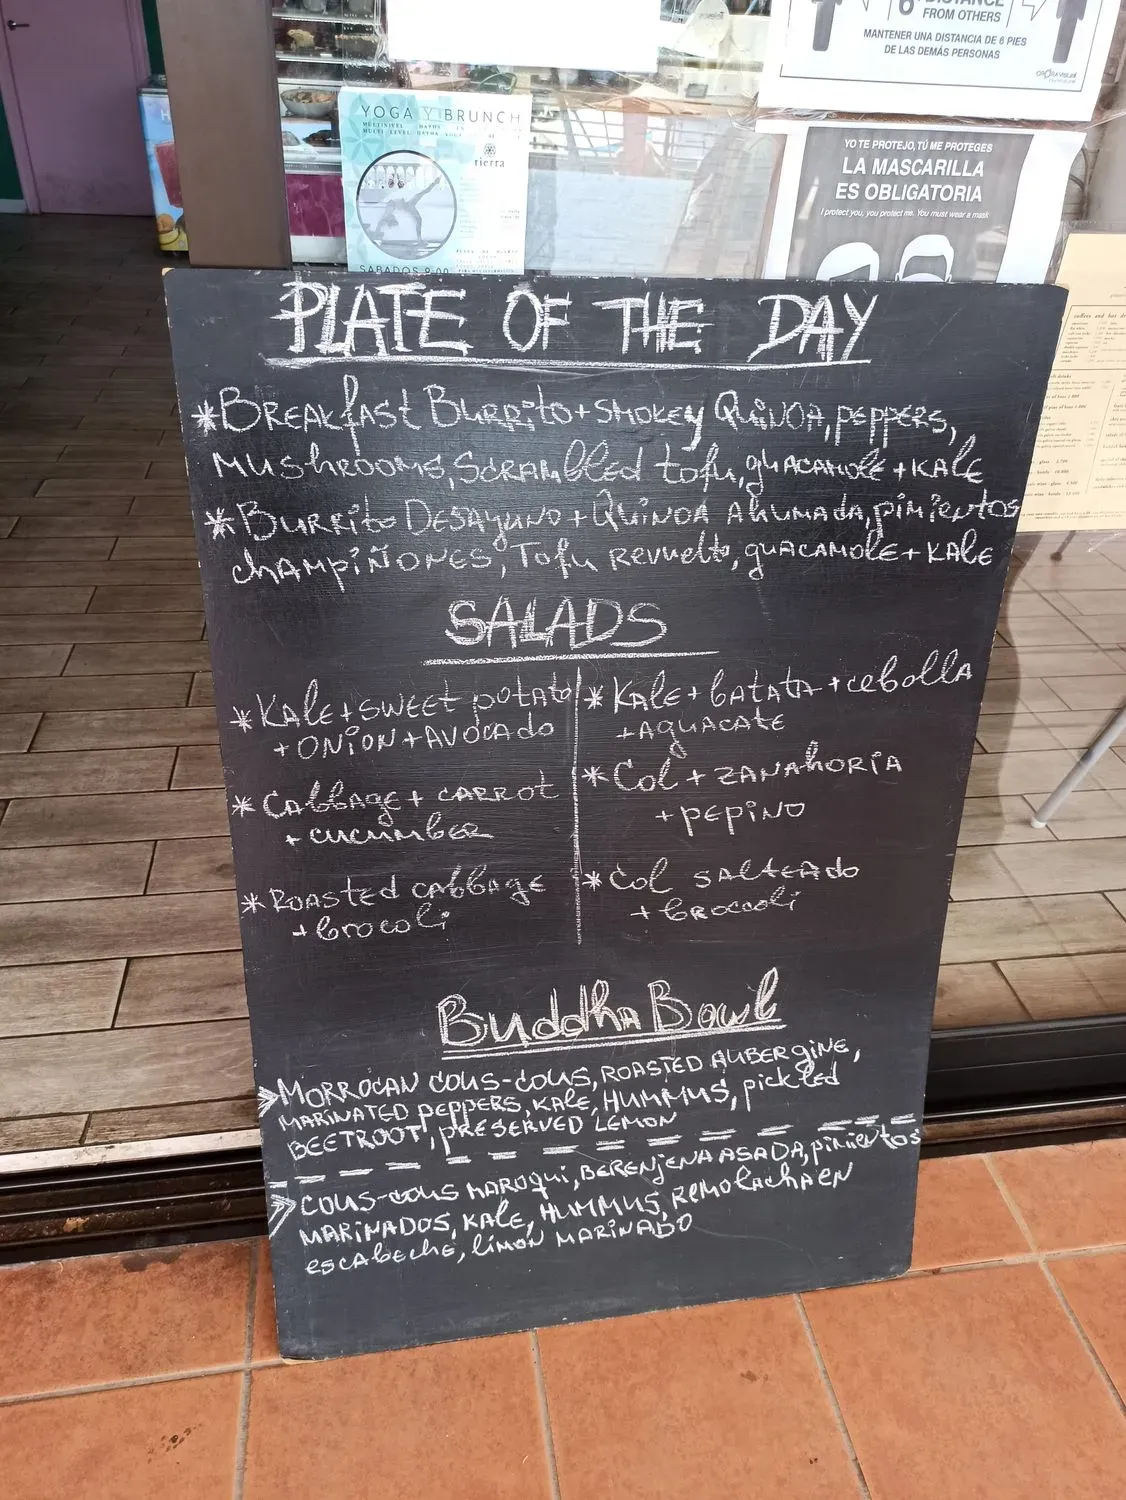 DISTANCE
6'
FROM OTHERS
MANTENER UNA DISTANCIA DE 6 PIES
DE LAS DEMÁS PERSONAS
YOGA Y BRUNCH
tierra
SABADOS 9:00
YO TE PROTEJO, TÚ ME PROTEGES
LA MASCARILLA
ES OBLIGATORIA
I protect you, you protect me. You must wear a mask
coffees and hot
PLATE OF THE DAY
*BREAKfAST BURRITO + SMOKEY QUINOA, PEPPERS,
MUShROOMS, SCRAMblEd tofu, guACAMOLE + KALE
*BURRITO DESAyUNO + QUINOA AhUMAdA, piMiENtOS
chAMpiÑONES, Tofu REVuELto, guACAMOLE + KALE
SALADS
*KALE + SWEET potAto
+ ONION + AVOCAdO
*CAbbAgE + CARROT
+ CUCUMbER
*ROASTEd CAbbAgE
+ bROCOli
*KALE + bATATA + CEbOllA
+ AguACATE
*COl + ZANAhORIA
+ PEPINO
*COl SALTEAdO
+ bROCCOli
Buddha Bowl
MORROCAN COUS-COUS, ROASTED AUBERgINE,
MARINATED PEPPERS, KALE, HUMMUS, pickLEd
BEETROOT, PRESERVED LEMON
COUS-COUS MAROqui, BERENjENA ASADA, piMiENtOS
MARINADOS, KALE, HUMMUS, REMOlACHA EN
ESCAbECHE, liMóN MARINADO